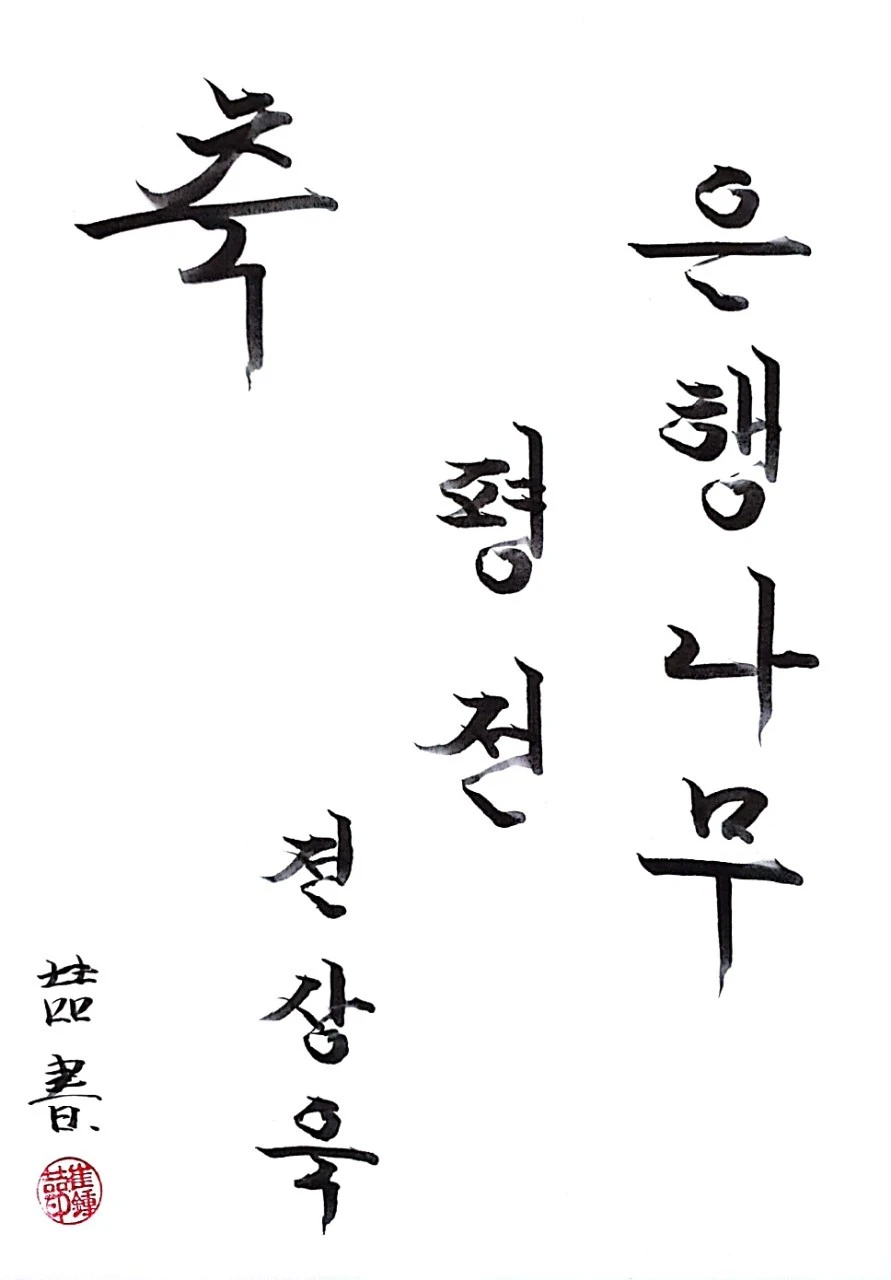 축
은행나무
평전
전상욱
喆書
崔鍾
喆印